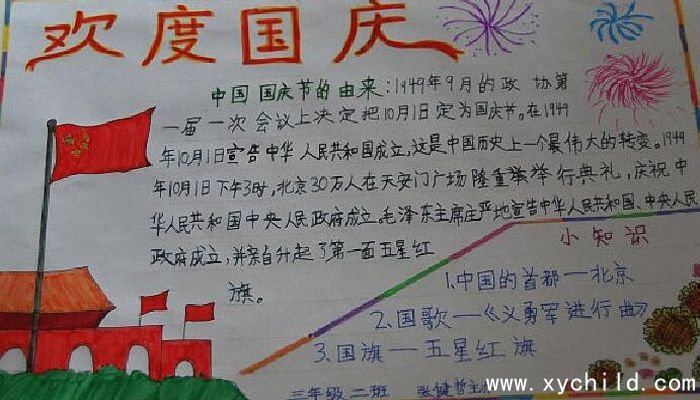 欢度国庆
中国国庆节的由来：1949年9月的政协第
一届一次会议上决定把10月1日定为国庆节。在1949
年10月1日宣告中华人民共和国成立，这是中国历史上一个最伟大的转变。1949
年10月1日下午3时，北京30万人在天安门广场隆重举行典礼，庆祝中
华人民共和国中央人民政府成立。毛泽东主席庄严地宣告中华人民共和国、中央人民
政府成立，并亲自升起了第一面五星红
旗。
小知识
1.中国的首都—北京
2.国歌—《义勇军进行曲》
3.国旗—五星红旗
三年级二班
www.xychild.com